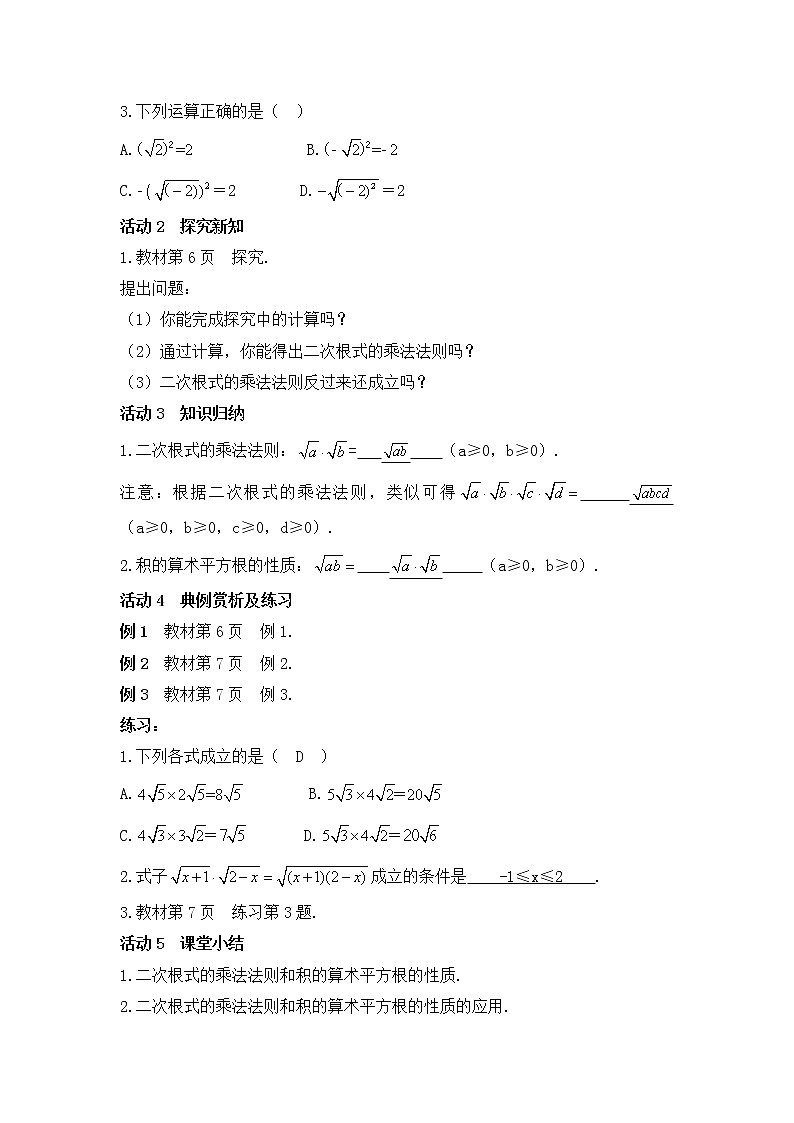 3.下列运算正确的是（　）
A.(√2)²=2　　B.(-√2)²=-2
C.-(√(−2))²＝2　　D.−√(−2)²＝2
活动2　探究新知
1.教材第6页　探究.
提出问题：
（1）你能完成探究中的计算吗？
（2）通过计算，你能得出二次根式的乘法法则吗？
（3）二次根式的乘法法则反过来还成立吗？
活动3　知识归纳
1.二次根式的乘法法则：√a·√b=___√ab____（a≥0，b≥0）.
注意：根据二次根式的乘法法则，类似可得√a·√b·√c·√d=______√abcd
（a≥0，b≥0，c≥0，d≥0）.
2.积的算术平方根的性质：√ab=____√a·√b_____（a≥0，b≥0）.
活动4　典例赏析及练习
例1　教材第6页　例1.
例2　教材第7页　例2.
例3　教材第7页　例3.
练习：
1.下列各式成立的是（　D　）
A.4√5×2√5=8√5　　B.5√3×4√2=20√5
C.4√3×3√2=7√5　　D.5√3×4√2=20√6
2.式子√x+1·√2−x=√(x+1)(2−x)成立的条件是____-1≤x≤2____.
3.教材第7页　练习第3题.
活动5　课堂小结
1.二次根式的乘法法则和积的算术平方根的性质.
2.二次根式的乘法法则和积的算术平方根的性质的应用.